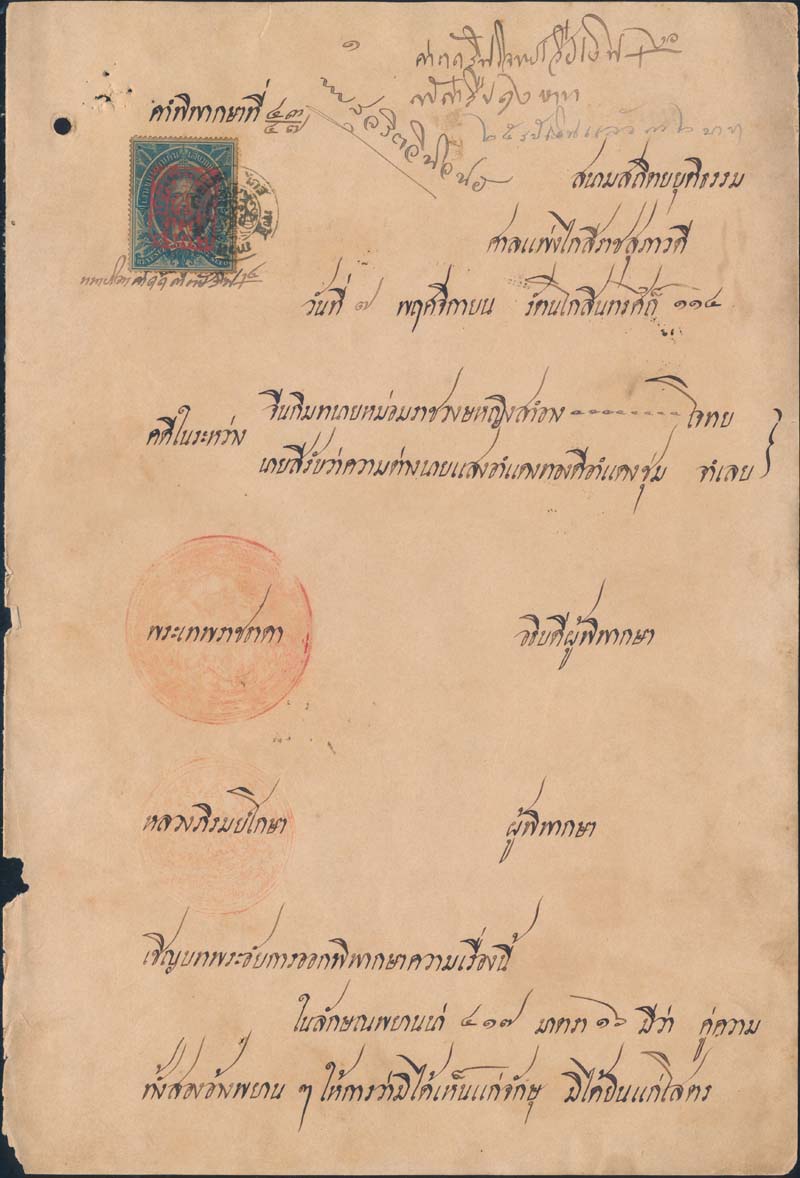 ๑
คำพิพากษาที่ ๔๓/๔๗
สนามสถิตยยุติธรรม
ศาลแพ่งไกสีราชสุภาวดี
วันที่ ๗ พฤศจิกายน รัตนโกสินทรศก๊ ๑๑๔
คดีในระหว่าง
จีนกิมทนายหม่อมราชวงษหญิงสำอาง โจทย
นายสีรับว่าความต่างนายแสงอำแดงทองดีอำแดงชุ่ม จำเลย
พระเทพราชธาดา อธิบดีผู้พิพากษา
หลวงภิรมย์โกษา ผู้พิพากษา
เชิญบทพระอัยการออกพิพากษาความเรื่องนี้
ในลักษณพยานน่า ๔๑๗ มาตรา ๑๖ มีว่า คู่ความ
ทั้งสองอ้างพยาน ๆ ให้การว่ามิได้เห็นแก่จักษุ มิได้ยินแก่โสตร